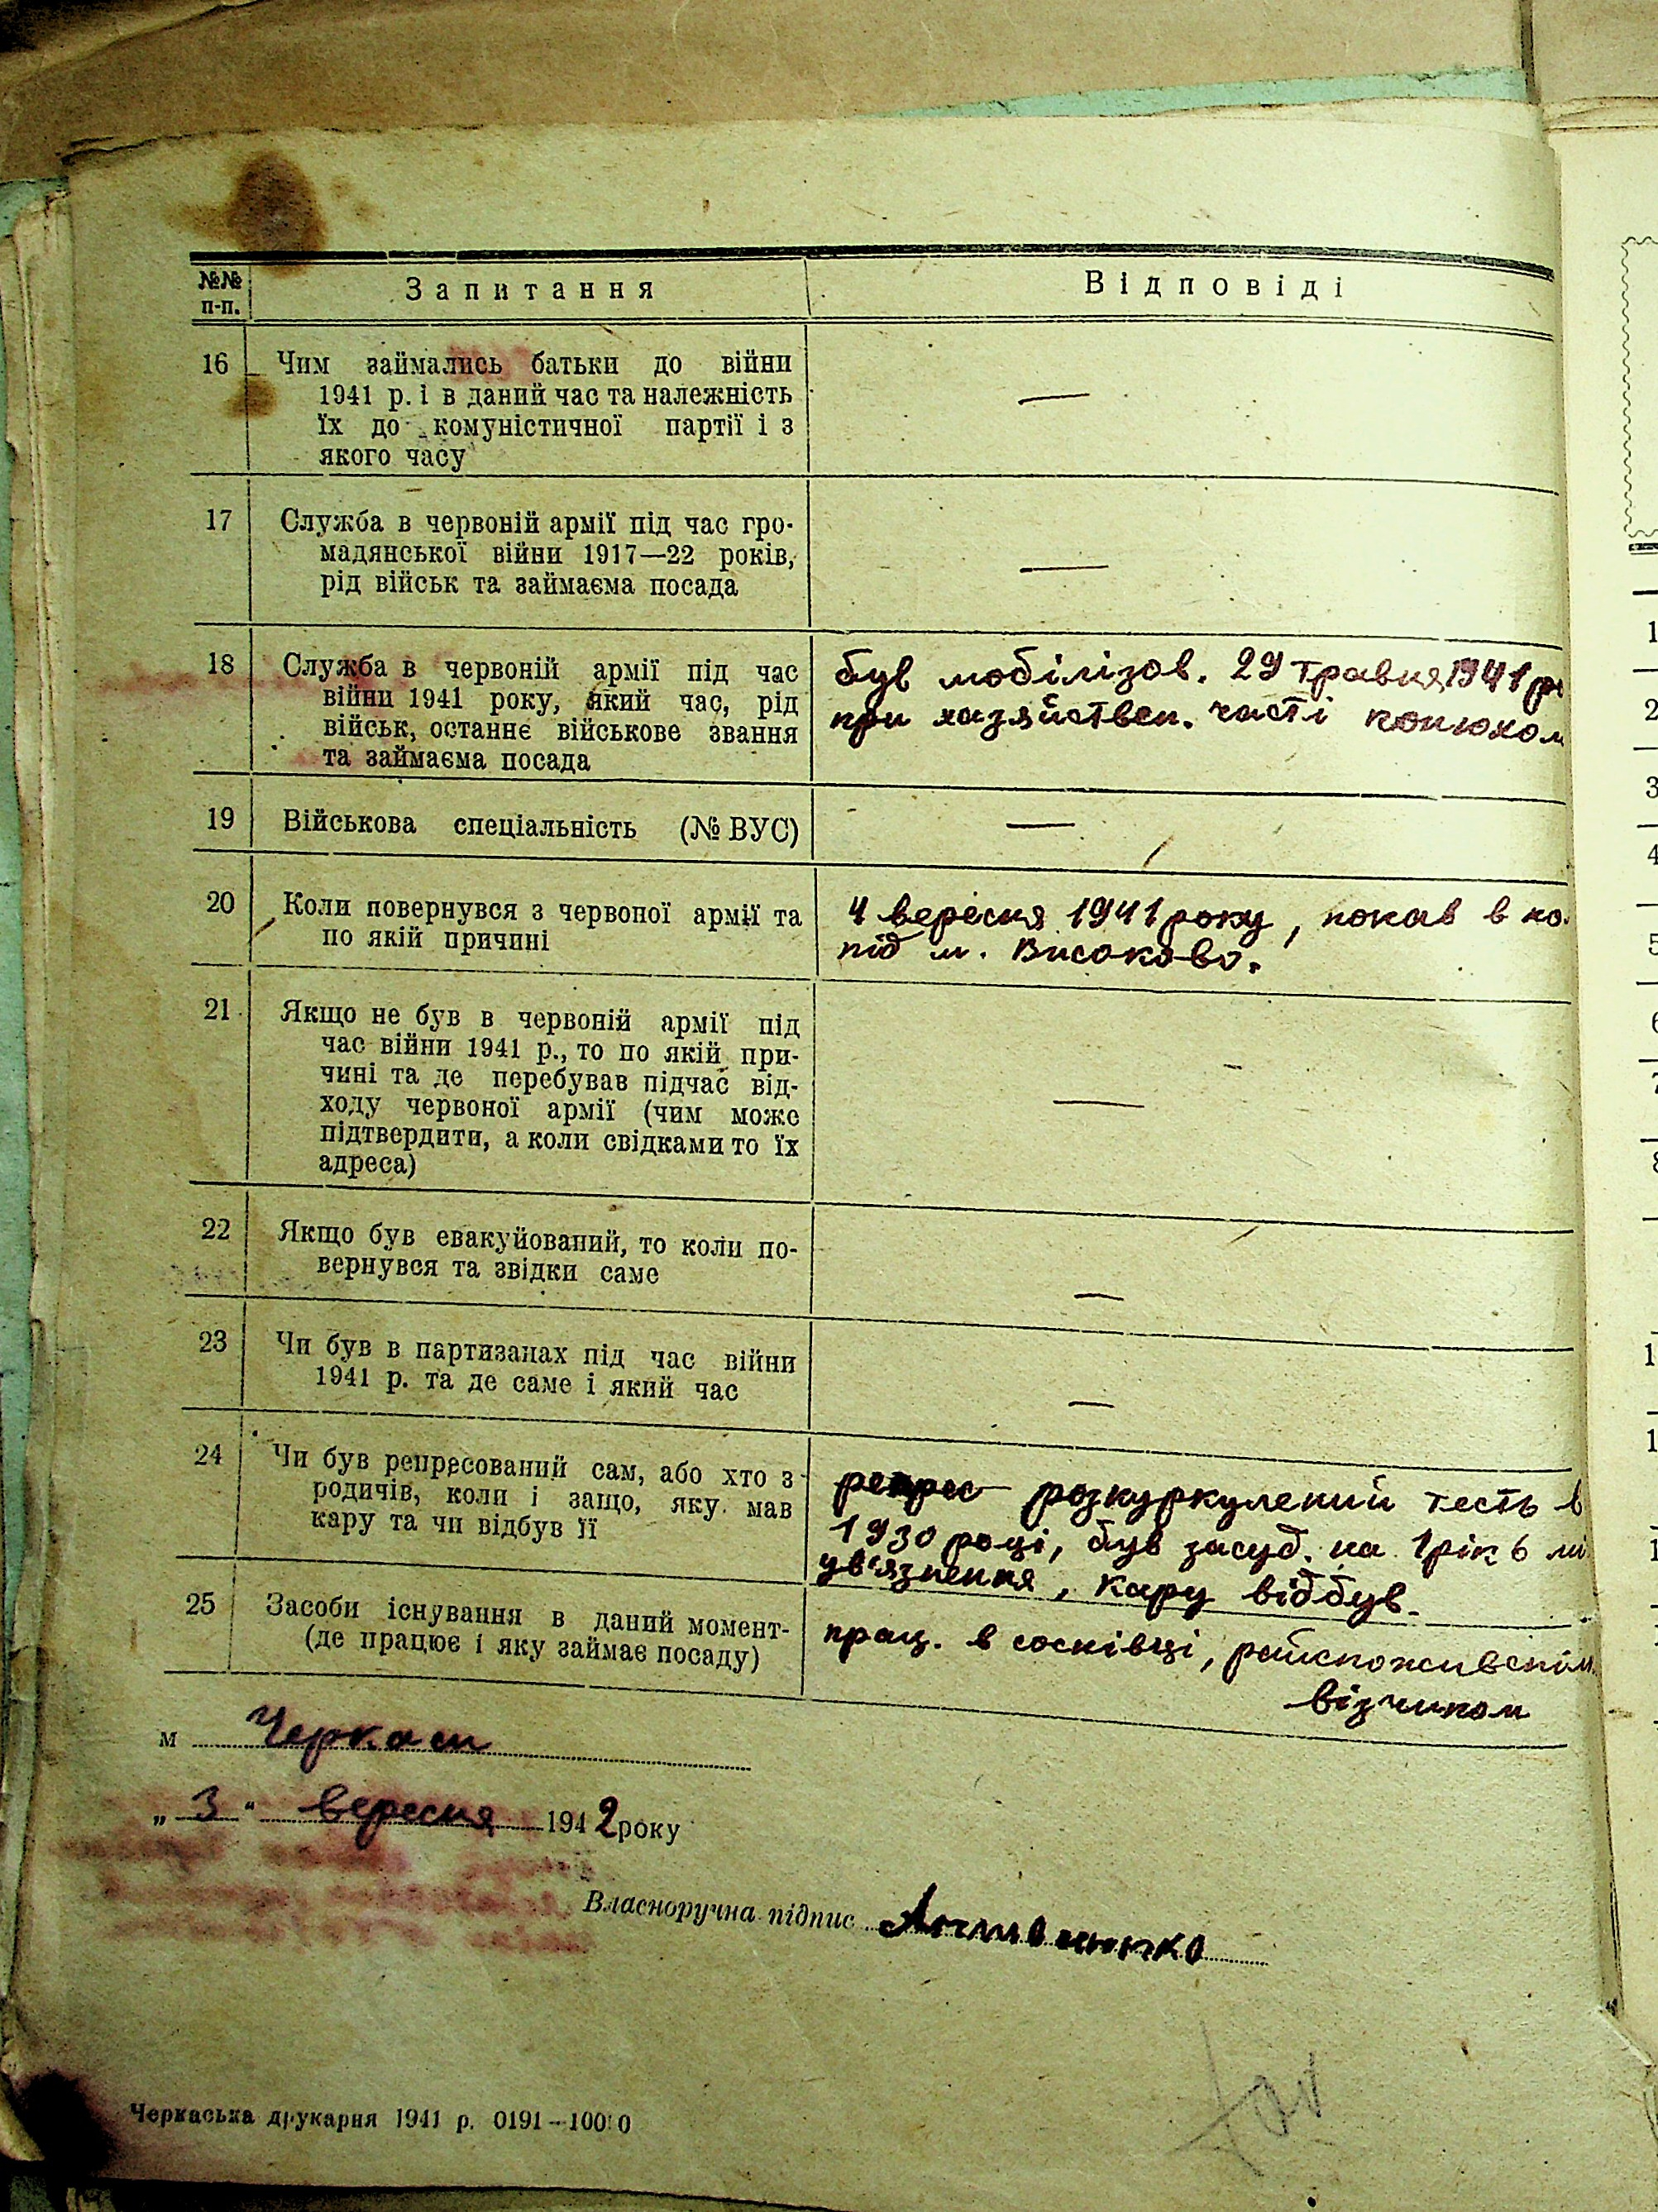 №№ п-п.
Запитання
Відповіді
16
Чим займались батьки до війни
1941 р. і в даний час та належність
їх до комуністичної партії і з
якого часу
—
17
Служба в червоній армії під час гро-
мадянської війни 1917—22 років,
рід військ та займаєма посада
—
18
Служба в червоній армії під час
війни 1941 року, який час, рід
військ, останнє військове звання
та займаєма посада
був мобілізов. 29 травня 1941 р
при хазяйствен. часті конюхом
19
Військова спеціальність (№ ВУС)
—
20
Коли повернувся з червоної армії та
по якій причині
4 вересня 1941 року, попав в по
під м. Високово.
21
Якщо не був в червоній армії під
час війни 1941 р., то по якій при-
чині та де перебував підчас від-
ходу червоної армії (чим може
підтвердити, а коли свідками то їх
адреса)
—
22
Якщо був евакуйований, то коли по-
вернувся та звідки саме
—
23
Чи був в партизанах під час війни
1941 р. та де саме і який час
—
24
Чи був репресований сам, або хто з
родичів, коли і защо, яку мав
кару та чи відбув її
розкуркулений тесть в
1930 році, був засуд. на 1 рік 6 мі
ув'язнення, кару відбув.
25
Засоби існування в даний момент-
(де працює і яку займає посаду)
прац. в соснівці, райспоживспілк
візчиком
м Черкаси
„3“ вересня 1942 року
Власноручна підпис
Черкаська друкарня 1941 р. 0191—10000
1
2
3
4
5
6
7
8